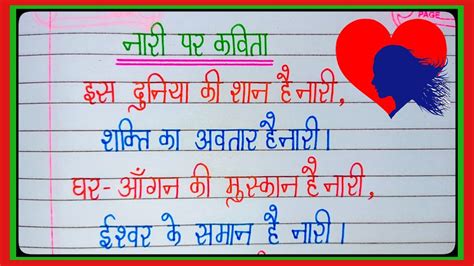 PAGE
नारी पर कविता
इस दुनिया की शान है नारी,
शक्ति का अवतार है नारी।
घर-आँगन की मुस्कान है नारी,
ईश्वर के समान है नारी।